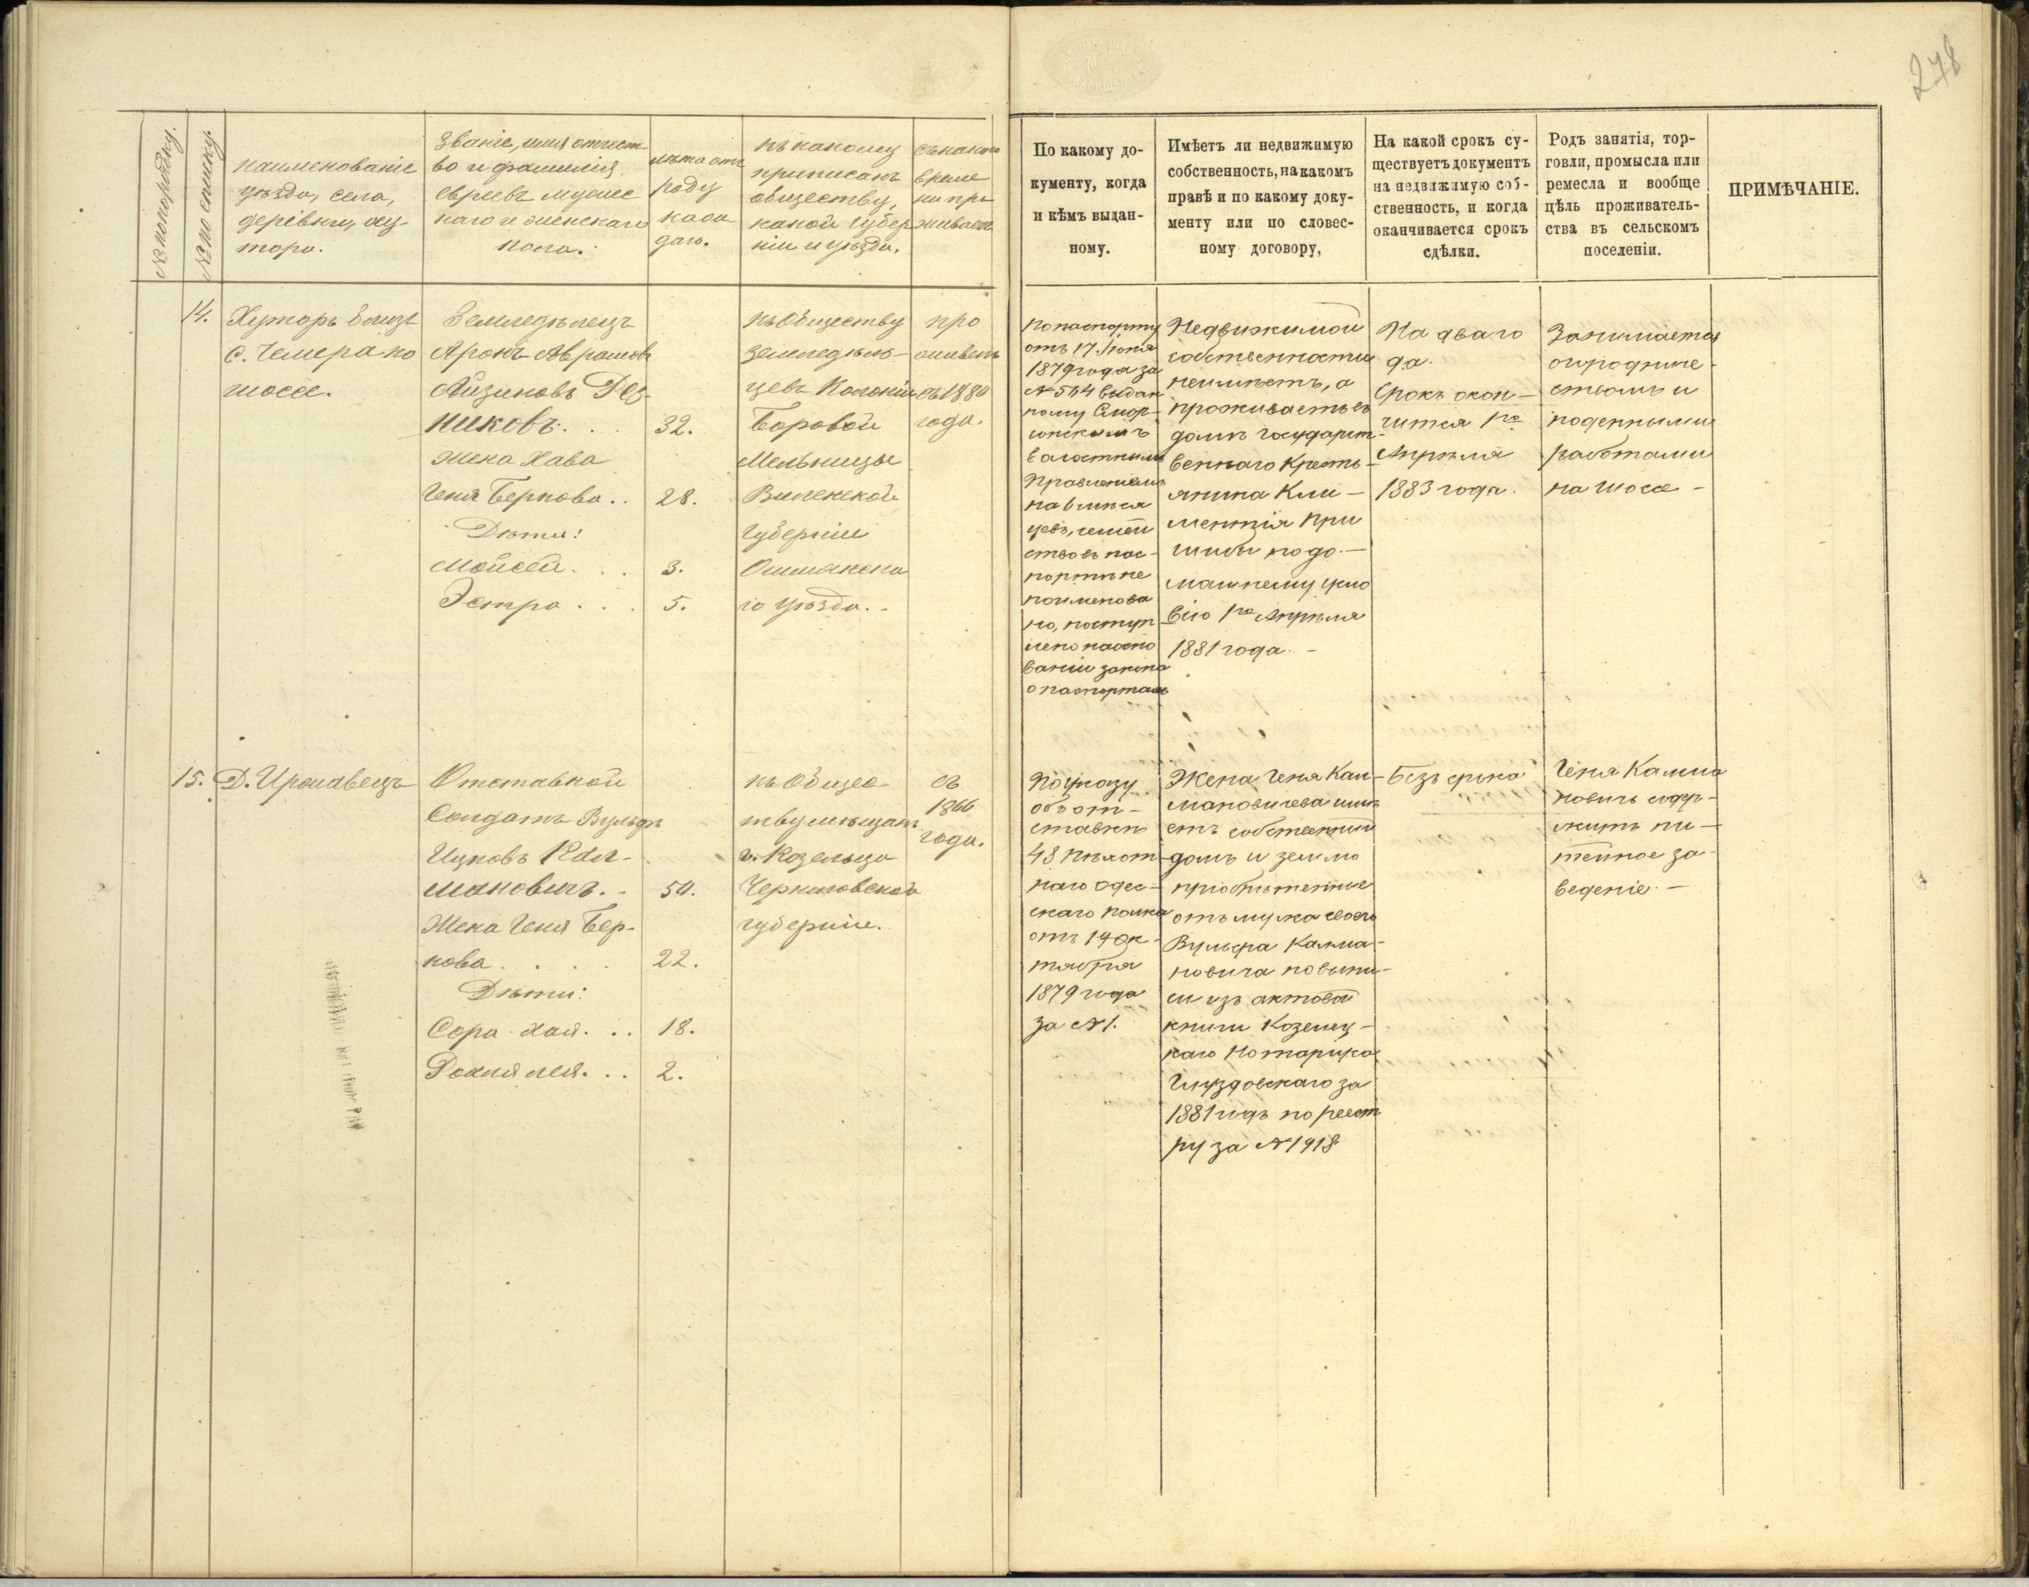 278
№ по порядку.
№ по списку.
Наименованіе
уѣзда, села,
деревни, ху-
тора.
Званіе, имя отчест-
во и фамилія
евреевъ мужес
каго и женскаго
пола.
Лѣта отъ
роду
кажд
даго.
Къ какому
приписанъ
обществу,
какой губер
ніи и уѣзда.
Съ какого
време
ни про
живаетъ
По какому до-
кументу, когда
и кѣмъ выдан-
ному.
Имѣетъ ли недвижимую
собственность, на какомъ
правѣ и по какому доку-
менту или по словес-
ному договору,
На какой срокъ су-
ществуетъ документъ
на недвижимую соб-
ственность, и когда
оканчивается срокъ
сдѣлки.
Родъ занятія, тор-
говли, промысла или
ремесла и вообще
цѣль проживатель-
ства въ сельскомъ
поселеніи.
ПРИМѢЧАНІЕ.
14.
Хуторъ близь
с. Чемера по
шоссе.
Земледѣлецъ
Аронъ Аврамовъ
Айзиковъ Рез-
никовъ. . .
32.
Жена Хава
Геня Беркова . .
28.
Дѣти:
Мойсей. . .
3.
Эстра . . .
5.
Къ обществу
земледѣль-
цевъ Колоніи
Боровой
Мельницы
Виленской
Губерніи
Ошмянска
го уѣзда. -
про
живаетъ
съ 1880
года.
По паспорту
отъ 17 Іюня
1879 года за
№ 544 выдан
ному Смор-
гонскимъ
волостнымъ
Правленіемъ
цевъ, семей
ство въ пас-
портѣ не
поименова
но, поступ
лено на осно
ваніи закона
о паспортахъ
Недвижимой
собственности
неимѣетъ, а
проживаетъ въ
домѣ государст-
веннаго кресть-
янина Кли-
ментія При
шибы по до. -
машнему усло
вію 1го Апрѣля
1881 года. -
На два го
да.
Срокъ окон-
чится 1го
Апрѣля
1883 года.
Занимается
огородниче-
ствомъ и
поденными
работами
на шоссе -
15.
Д. Ирославецъ
Отставной
Солдатъ Вульфъ
Ицковъ Кал-
мановичъ. -
50.
Жена Геня Бер-
кова . . . .
22.
Дѣти:
Сора Хая. . .
18.
2.
Къ общес
тву мѣщанъ
г. Козельца
Черниговской
губерніи.
съ
1866
года.
По указу
объ от-
ставки
48 пѣхот
наго Одес-
скаго полка
отъ 14 Ок-
тября
1879 года
за № 1.
Жена Геня Кал-
мановичева имѣ
етъ собственный
домъ и землю
приобрѣтенные
отъ мужа своего
Вульфа Калма-
новича по выпи-
си изъ актовой
книги Козелец-
каго Нотаріуса
Глуздовскаго за
1881 годъ по реест
ру за № 1918
Безъ срока
Геня Калма
новичъ содер-
житъ пи-
тейное за-
веденіе. -